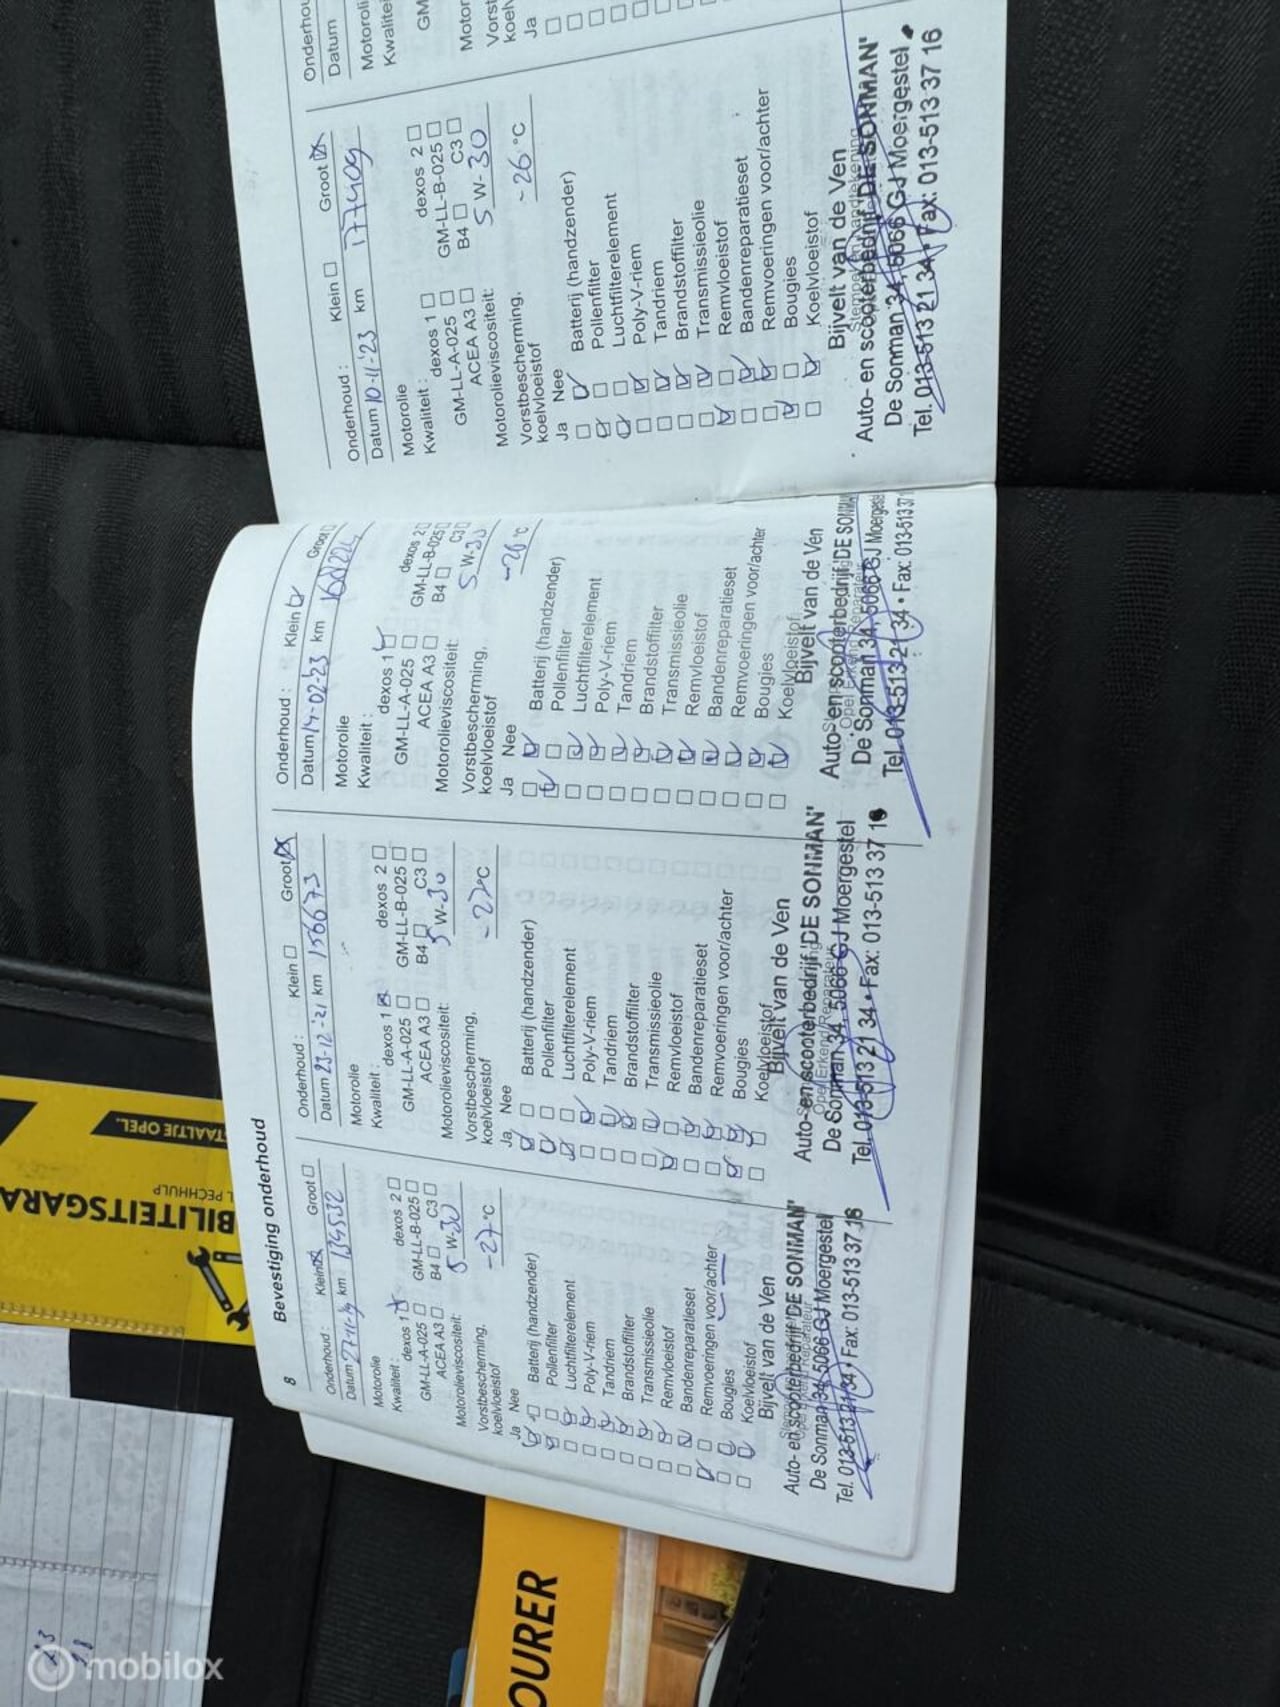 8
Bevestiging onderhoud
Onderhoud: Klein Groot
Datum km 134532
Motorolie
Kwaliteit: dexos 1 dexos 2
GM-LL-A-025 GM-LL-B-025
ACEA A3 B4 C3
Motorolieviscositeit: 5 W-30
Vorstbescherming,
koelvloeistof -27 °C
Ja Nee
Batterij (handzender)
Pollenfilter
Luchtfilterelement
Poly-V-riem
Tandriem
Brandstoffilter
Transmissieolie
Remvloeistof
Bandenreparatieset
Remvoeringen voor/achter
Bougies
Koelvloeistof
Bijvelt van de Ven
Auto- en scooterbedrijf 'DE SONMAN'
De Sonman 34, 5066 GJ Moergestel
Tel. 013-513 21 34 • Fax: 013-513 37 16
Onderhoud: Klein Groot
Datum 23-12-'21 km 156673
Motorolie
Kwaliteit: dexos 1 dexos 2
GM-LL-A-025 GM-LL-B-025
ACEA A3 B4 C3
Motorolieviscositeit: 5 W-30
Vorstbescherming,
koelvloeistof -27 °C
Ja Nee
Batterij (handzender)
Pollenfilter
Luchtfilterelement
Poly-V-riem
Tandriem
Brandstoffilter
Transmissieolie
Remvloeistof
Bandenreparatieset
Remvoeringen voor/achter
Bougies
Koelvloeistof
Bijvelt van de Ven
Auto- en scooterbedrijf 'DE SONMAN'
Opel Erkend Reparateur
De Sonman 34, 5066 GJ Moergestel
Tel. 013-513 21 34 • Fax: 013-513 37 16
Onderhoud: Klein Groot
Datum 14-02-23 km
Motorolie
Kwaliteit: dexos 1 dexos 2
GM-LL-A-025 GM-LL-B-025
ACEA A3 B4 C3
Motorolieviscositeit: 5 W-30
Vorstbescherming,
koelvloeistof -26 °C
Ja Nee
Batterij (handzender)
Pollenfilter
Luchtfilterelement
Poly-V-riem
Tandriem
Brandstoffilter
Transmissieolie
Remvloeistof
Bandenreparatieset
Remvoeringen voor/achter
Bougies
Koelvloeistof
Bijvelt van de Ven
Auto- en scooterbedrijf 'DE SONMAN
Opel Erkend Reparateur
De Sonman 34, 5066 GJ Moergestel
Tel. 013-513 21 34 • Fax: 013-513 37 1
Onderhoud: Klein Groot
Datum 10-11-'23 km 177409
Motorolie
Kwaliteit: dexos 1 dexos 2
GM-LL-A-025 GM-LL-B-025
ACEA A3 B4 C3
Motorolieviscositeit: 5 W-30
Vorstbescherming,
koelvloeistof -26 °C
Ja Nee
Batterij (handzender)
Pollenfilter
Luchtfilterelement
Poly-V-riem
Tandriem
Brandstoffilter
Transmissieolie
Remvloeistof
Bandenreparatieset
Remvoeringen voor/achter
Bougies
Koelvloeistof
Bijvelt van de Ven
Stempel en handtekening
Auto- en scooterbedrijf 'DE SONMAN'
De Sonman 34, 5066 GJ Moergestel
Tel. 013-513 21 34 • Fax: 013-513 37 16
Onderhou
Datum
Motoroli
Kwalitei
GM
Motor
Vorst
koelv
Ja
TAALTJE OPEL.
L PECHHULP
BILITEITSGARA
OURER
mobilox